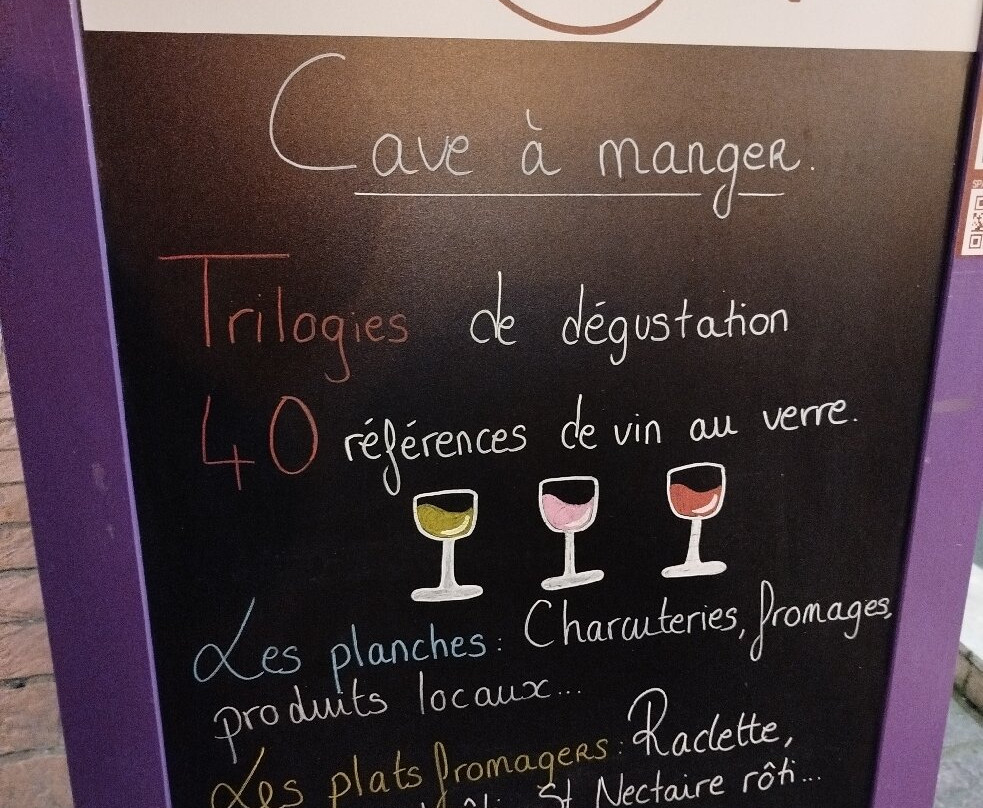 Cave à manger.
Trilogies de dégustation
40 références de vin au verre.
Les planches : Charcuteries, fromages,
produits locaux...
Les plats fromagers : Raclette,
St Nectaire rôti...